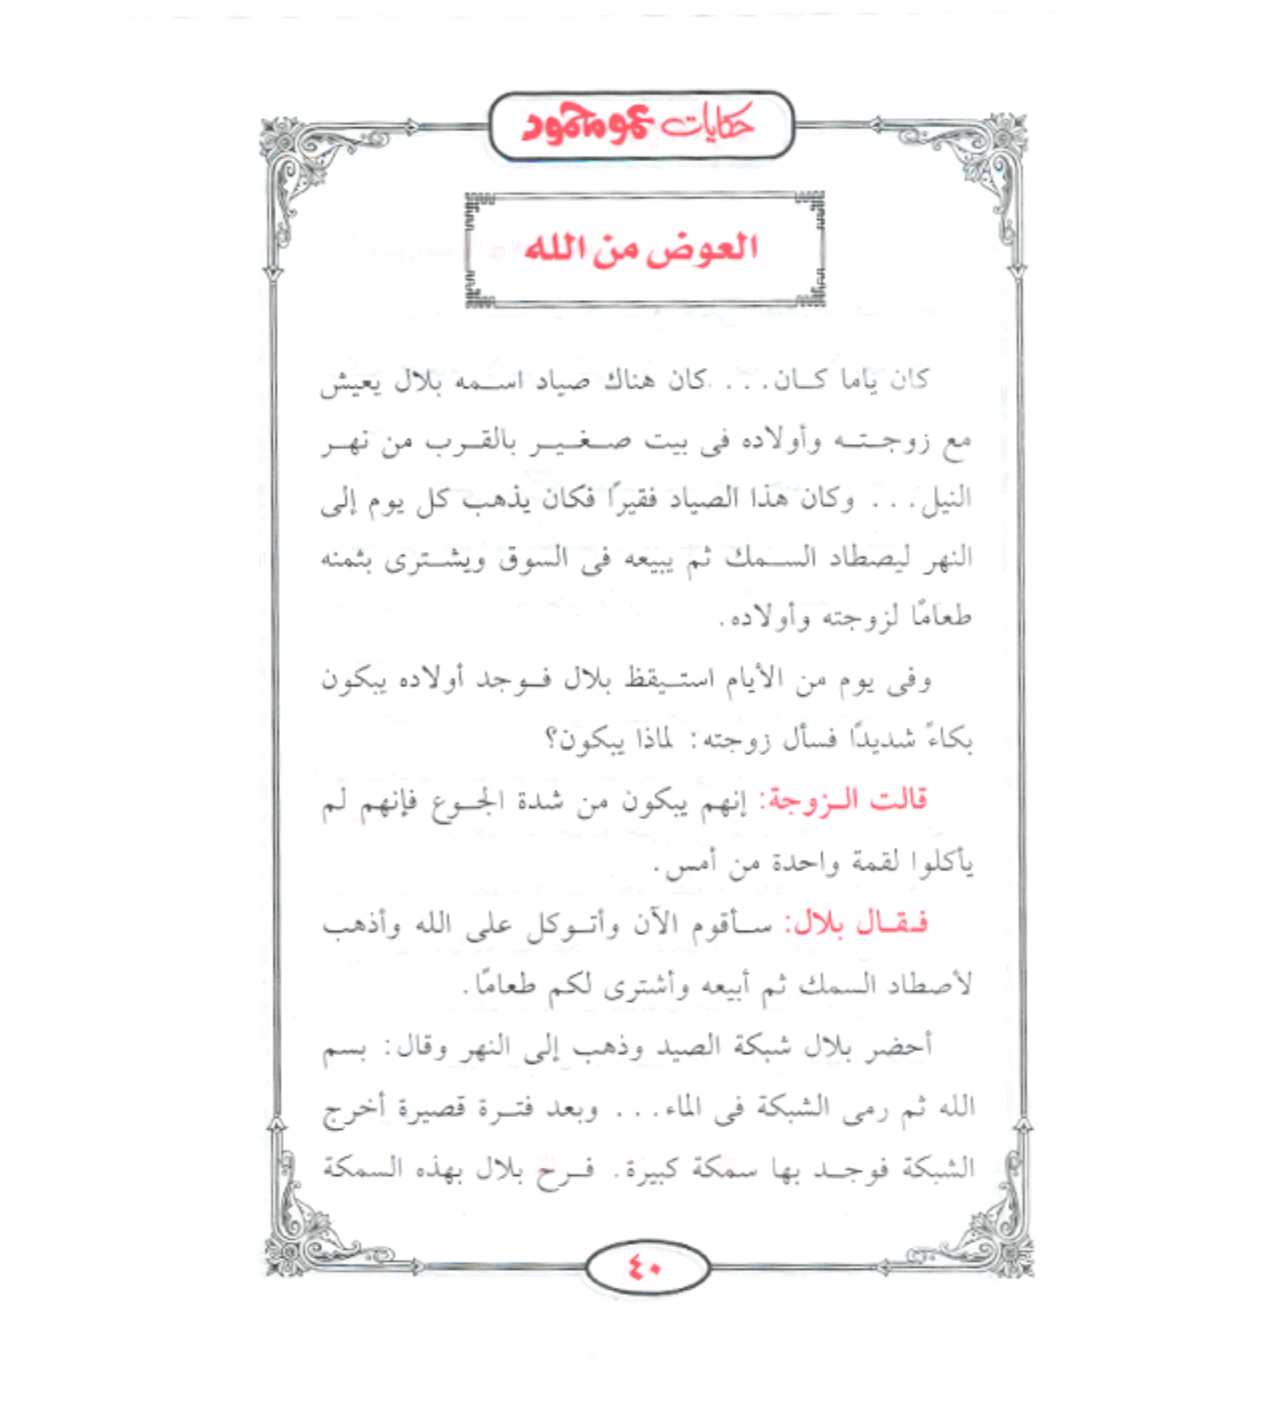 حكايات عمو محمود
العوض من الله
كان ياما كان... كان هناك صياد اسمه بلال يعيش
مع زوجته وأولاده فى بيت صغير بالقرب من نهر
النيل... وكان هذا الصياد فقيرًا فكان يذهب كل يوم إلى
النهر ليصطاد السمك ثم يبيعه فى السوق ويشترى بثمنه
طعامًا لزوجته وأولاده.
وفى يوم من الأيام استيقظ بلال فوجد أولاده يبكون
بكاءً شديدًا فسأل زوجته: لماذا يبكون؟
قالت الزوجة: إنهم يبكون من شدة الجوع فإنهم لم
يأكلوا لقمة واحدة من أمس.
فقال بلال: سأقوم الآن وأتوكل على الله وأذهب
لأصطاد السمك ثم أبيعه وأشترى لكم طعامًا.
أحضر بلال شبكة الصيد وذهب إلى النهر وقال: بسم
الله ثم رمى الشبكة فى الماء... وبعد فترة قصيرة أخرج
الشبكة فوجد بها سمكة كبيرة. فرح بلال بهذه السمكة
٤٠